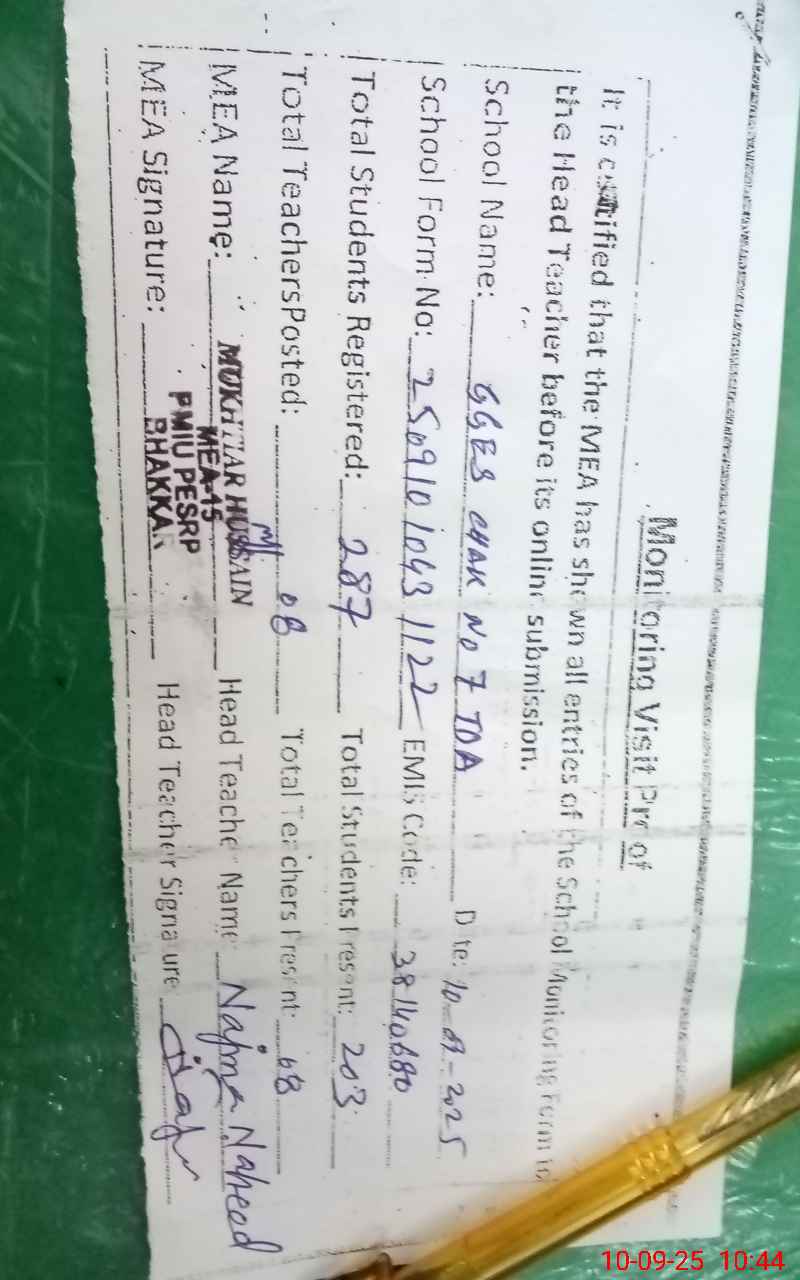 Monitoring Visit Proof
It is certified that the MEA has shown all entries of the School Monitoring Form to
the Head Teacher before its online submission.
School Name: GGES CHAK NO 7 TDA Date: 10-09-2025
School Form No: 2509101043 1122 EMIS Code: 38140680
Total Students Registered: 287 Total Students Present: 203
Total Teachers Posted: 08 Total Teachers Present: 08
MEA Name: MUKHTIAR HUSSAIN Head Teacher Name: Najma Naheed
MEA-15
PMIU PESRP
BHAKKAR
MEA Signature: Head Teacher Signature
10-09-25 10:44